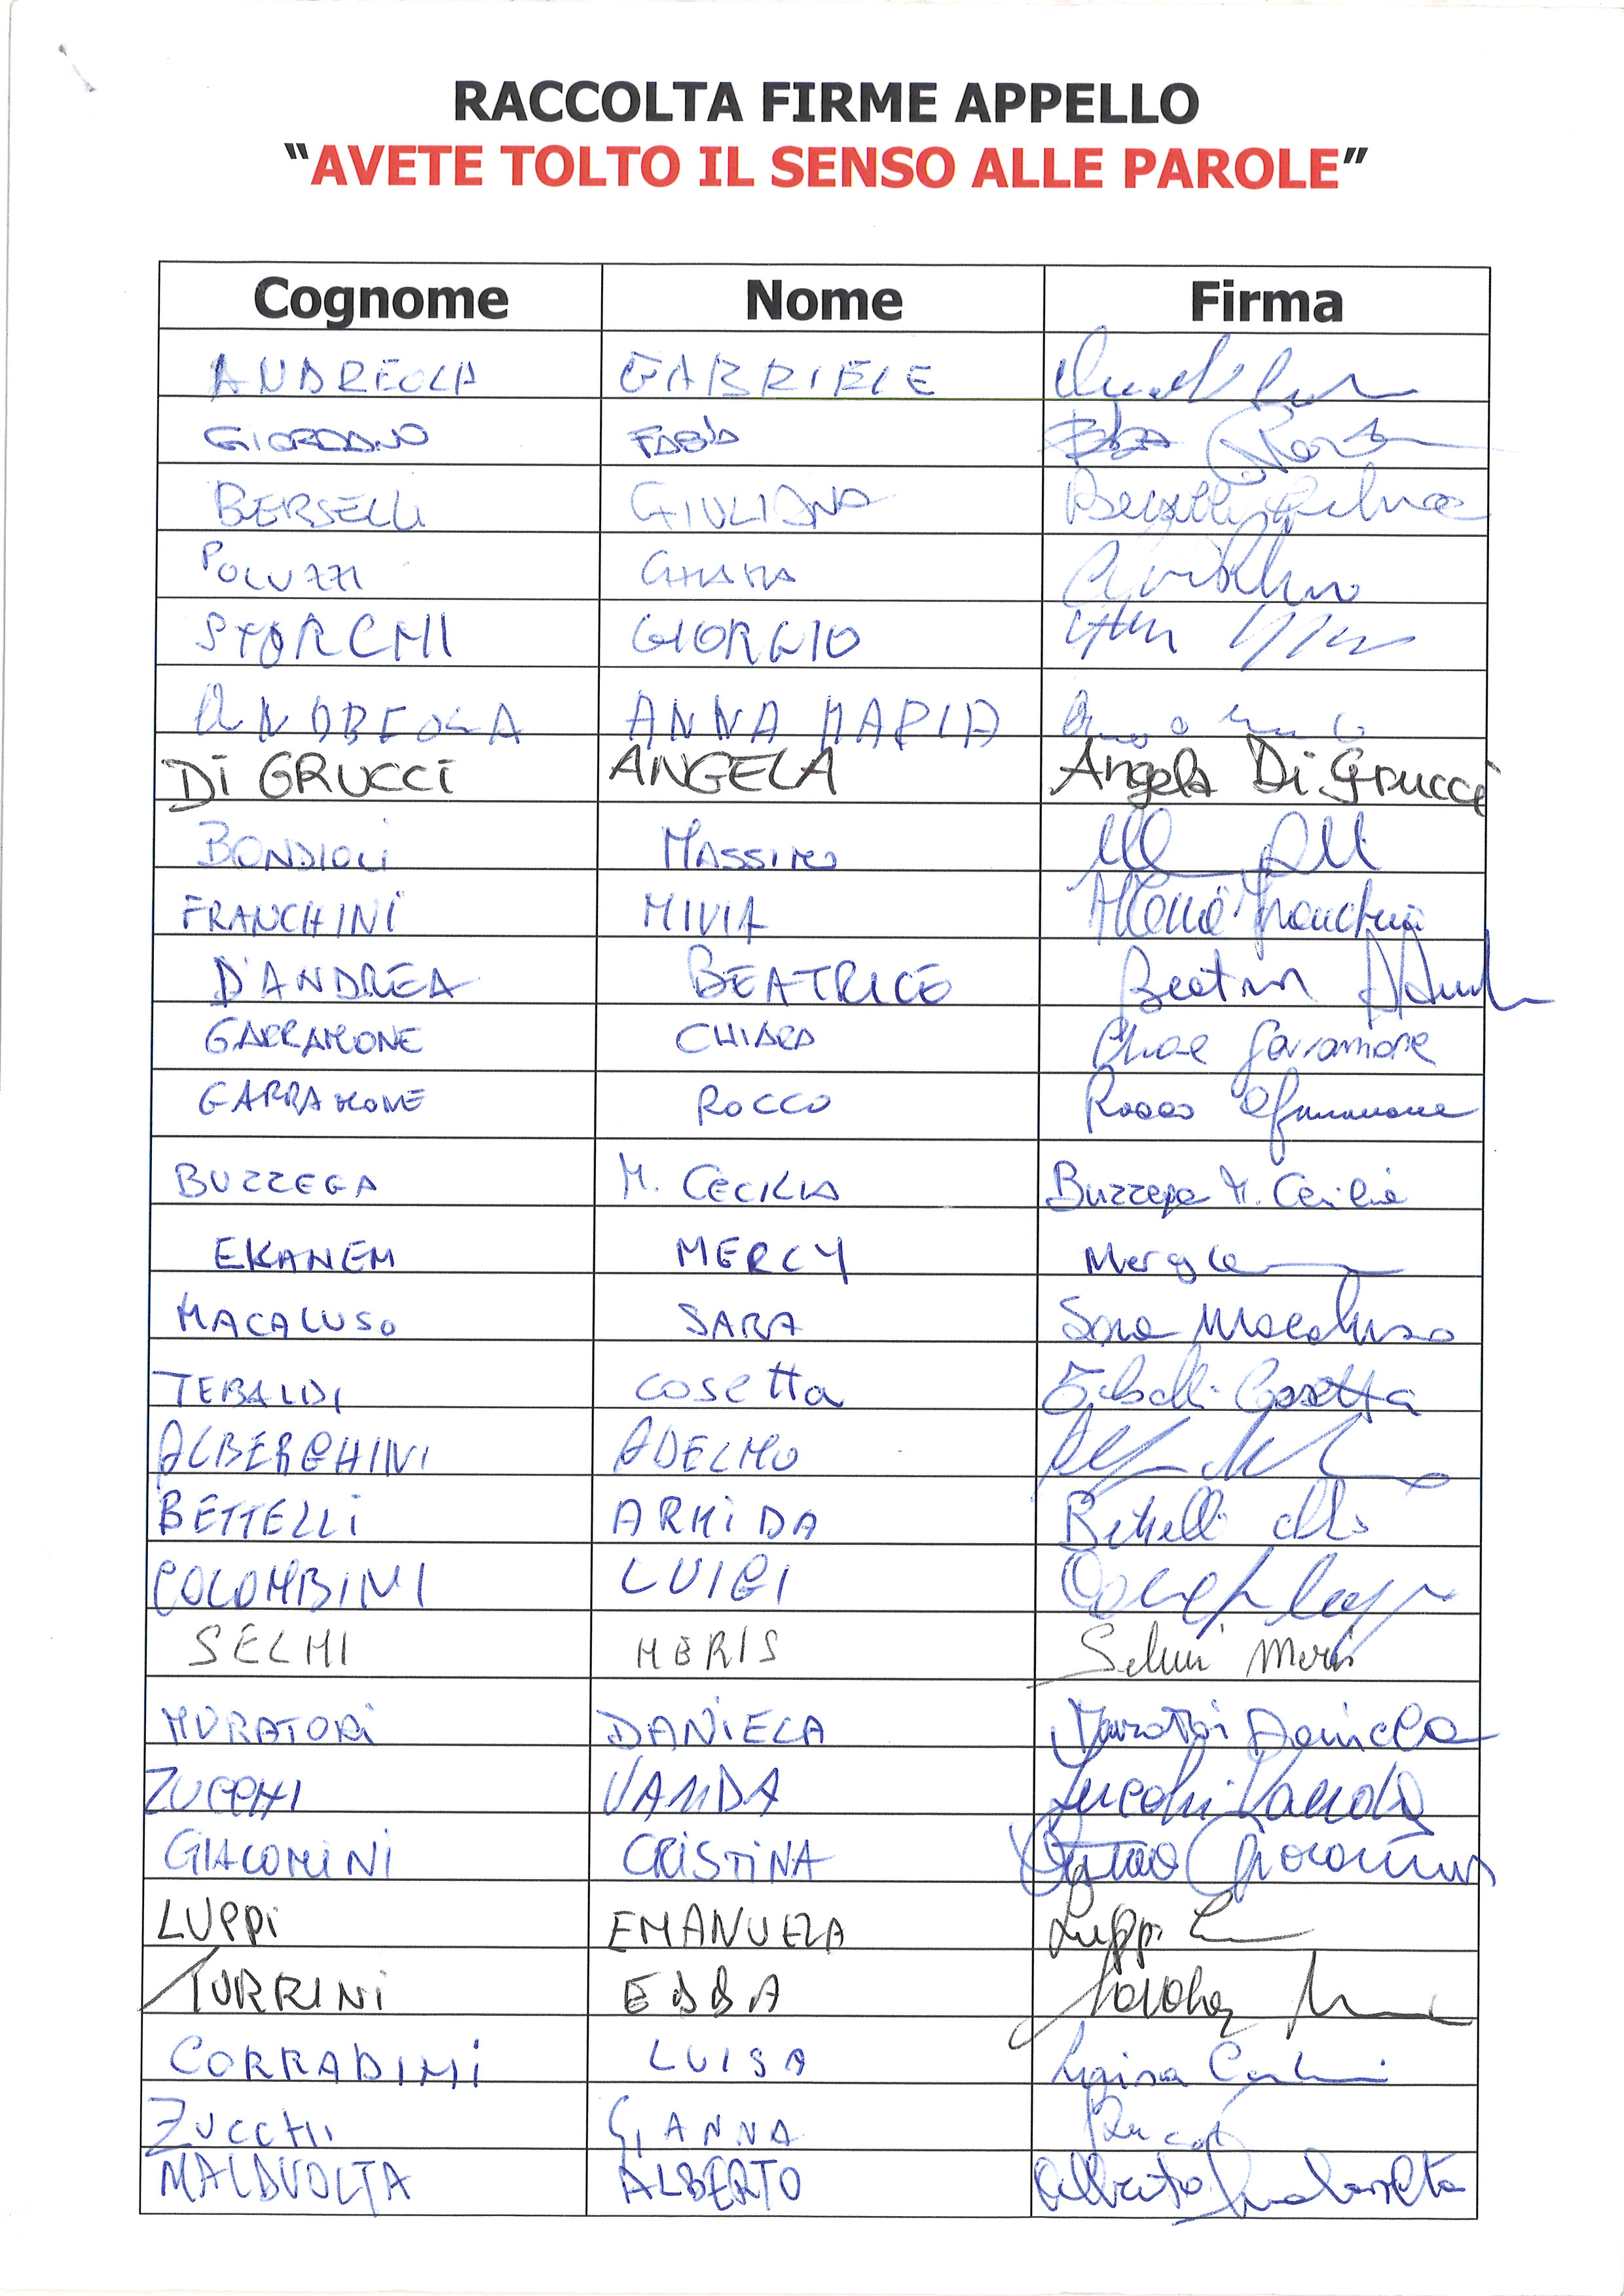 RACCOLTA FIRME APPELLO
“AVETE TOLTO IL SENSO ALLE PAROLE”
Cognome Nome Firma
ANDREOLA GABRIELE
GIORDANO FABIA
BERSELLI GIULIANA Berselli Giuliana
POLUZZI CHIARA
STORCHI GIORGIO
ANDREOLA ANNA MARIA
DI GRUCCI ANGELA Angela Di Grucci
BONDIOLI MASSIMO
FRANCHINI MIVIA Franchini
D'ANDREA BEATRICE Beatrice
GARRAMONE CHIARA Garramone
GARRAMONE ROCCO Rocco Garramone
BUZZEGA M. CECILIA Buzzega M. Cecilia
EKANEM MERCY Mercy
MACALUSO SARA Sara Macaluso
TEBALDI cosetta Tebaldi Cosetta
ALBERGHINI ADELMO
BETTELLI ARMIDA Bettelli
COLOMBINI LUIGI
SELMI MERIS Selmi Meris
MURATORI DANIELA Muratori Daniela
ZUCCHI VANDA Zucchi Vanda
GIACOMINI CRISTINA Giacomini
LUPPI EMANUELA Luppi
TURRINI EBBA
CORRADINI LUISA Luisa
ZUCCHI GIANNA
MALAVOLTA ALBERTO Alberto Malavolta